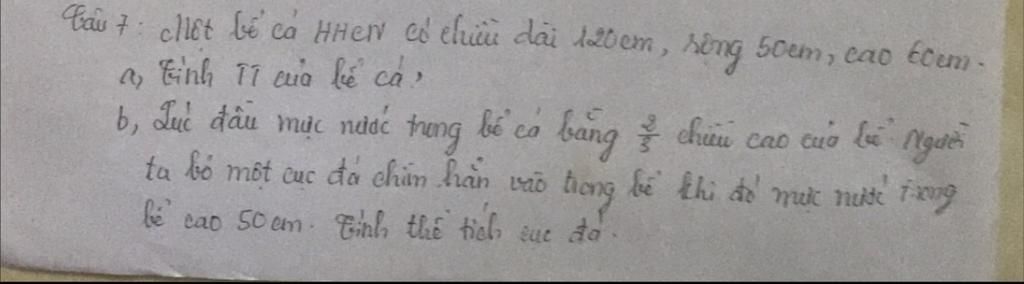 Câu 7: Một bể cá HHCN có chiều dài 120cm, rộng 50cm, cao 60cm.
a, Tính TT của bể cá?
b, Lúc đầu mực nước trong bể cá bằng 2/3 chiều cao của bể. Người
ta bỏ một cục đá chìm hẳn vào trong bể khi đó mực nước trong
bể cao 50cm. Tính thể tích cục đá.